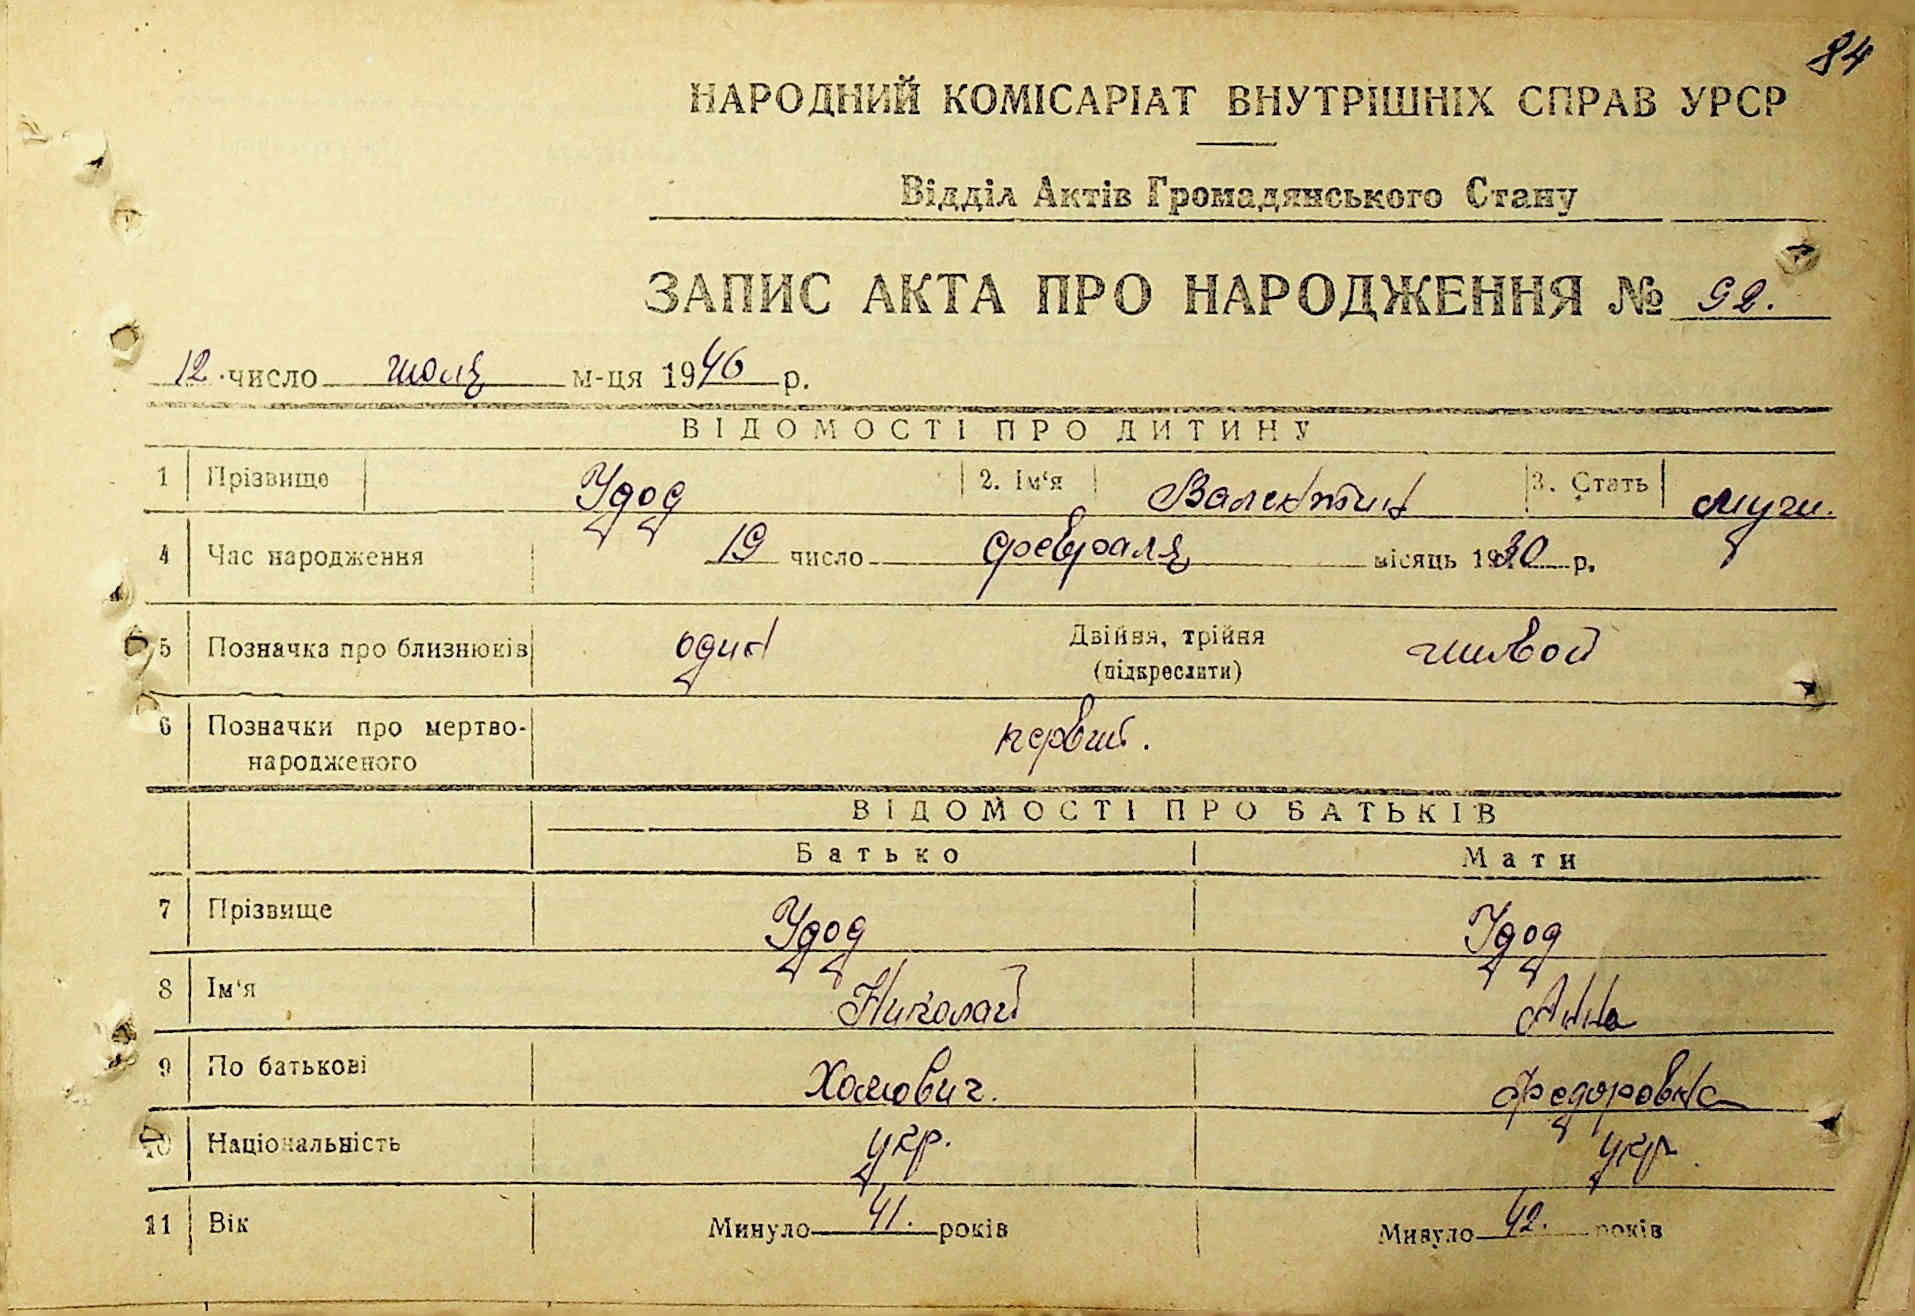 84
НАРОДНИЙ КОМІСАРІАТ ВНУТРІШНІХ СПРАВ УРСР
Відділ Актів Громадянського Стану
ЗАПИС АКТА ПРО НАРОДЖЕННЯ № 92.
12 число июля м-ця 1946 р.
ВІДОМОСТІ ПРО ДИТИНУ
1 Прізвище Удод 2. Ім'я Валентин 3. Стать муж.
4 Час народження 19 число февраля місяць 1930 р.
5 Позначка про близнюків один Двійня, трійня (підкреслити) живой
6 Позначки про мертво-
народженого первий.
ВІДОМОСТІ ПРО БАТЬКІВ
Батько Мати
7 Прізвище Удод Удод
8 Ім'я Николай Анна
9 По батькові Хомович. Федоровна
10 Національність укр. укр.
11 Вік Минуло 41. років Минуло 42. років